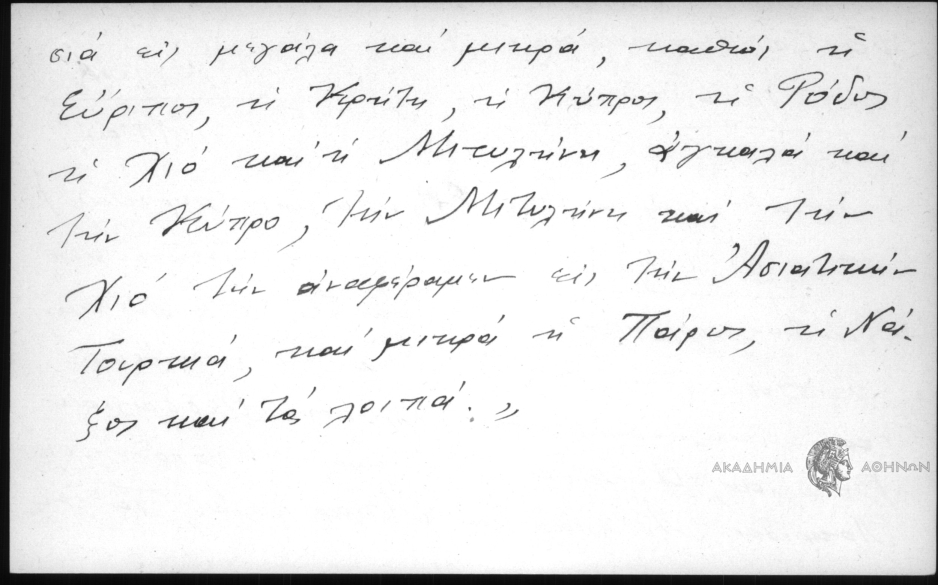 σιά εἰς μεγάλα καί μικρά, καθώς ἡ
Εὔριπος, ἡ Κρήτη, ἡ Κύπρος, ἡ Ρόδος
ἡ Χιό καί ἡ Μιτυλήνη, ἀγκαλά καί
τήν Κύπρο, τήν Μιτυλήνη καί τήν
Χιό τήν ἀναφέραμεν εἰς τήν Ἀσιατικήν
Τουρκιά, καί μικρά ἡ Πάρος, ἡ Νά-
ξος καί τά λοιπά.»
ΑΚΑΔΗΜΙΑ ΑΘΗΝΩΝ